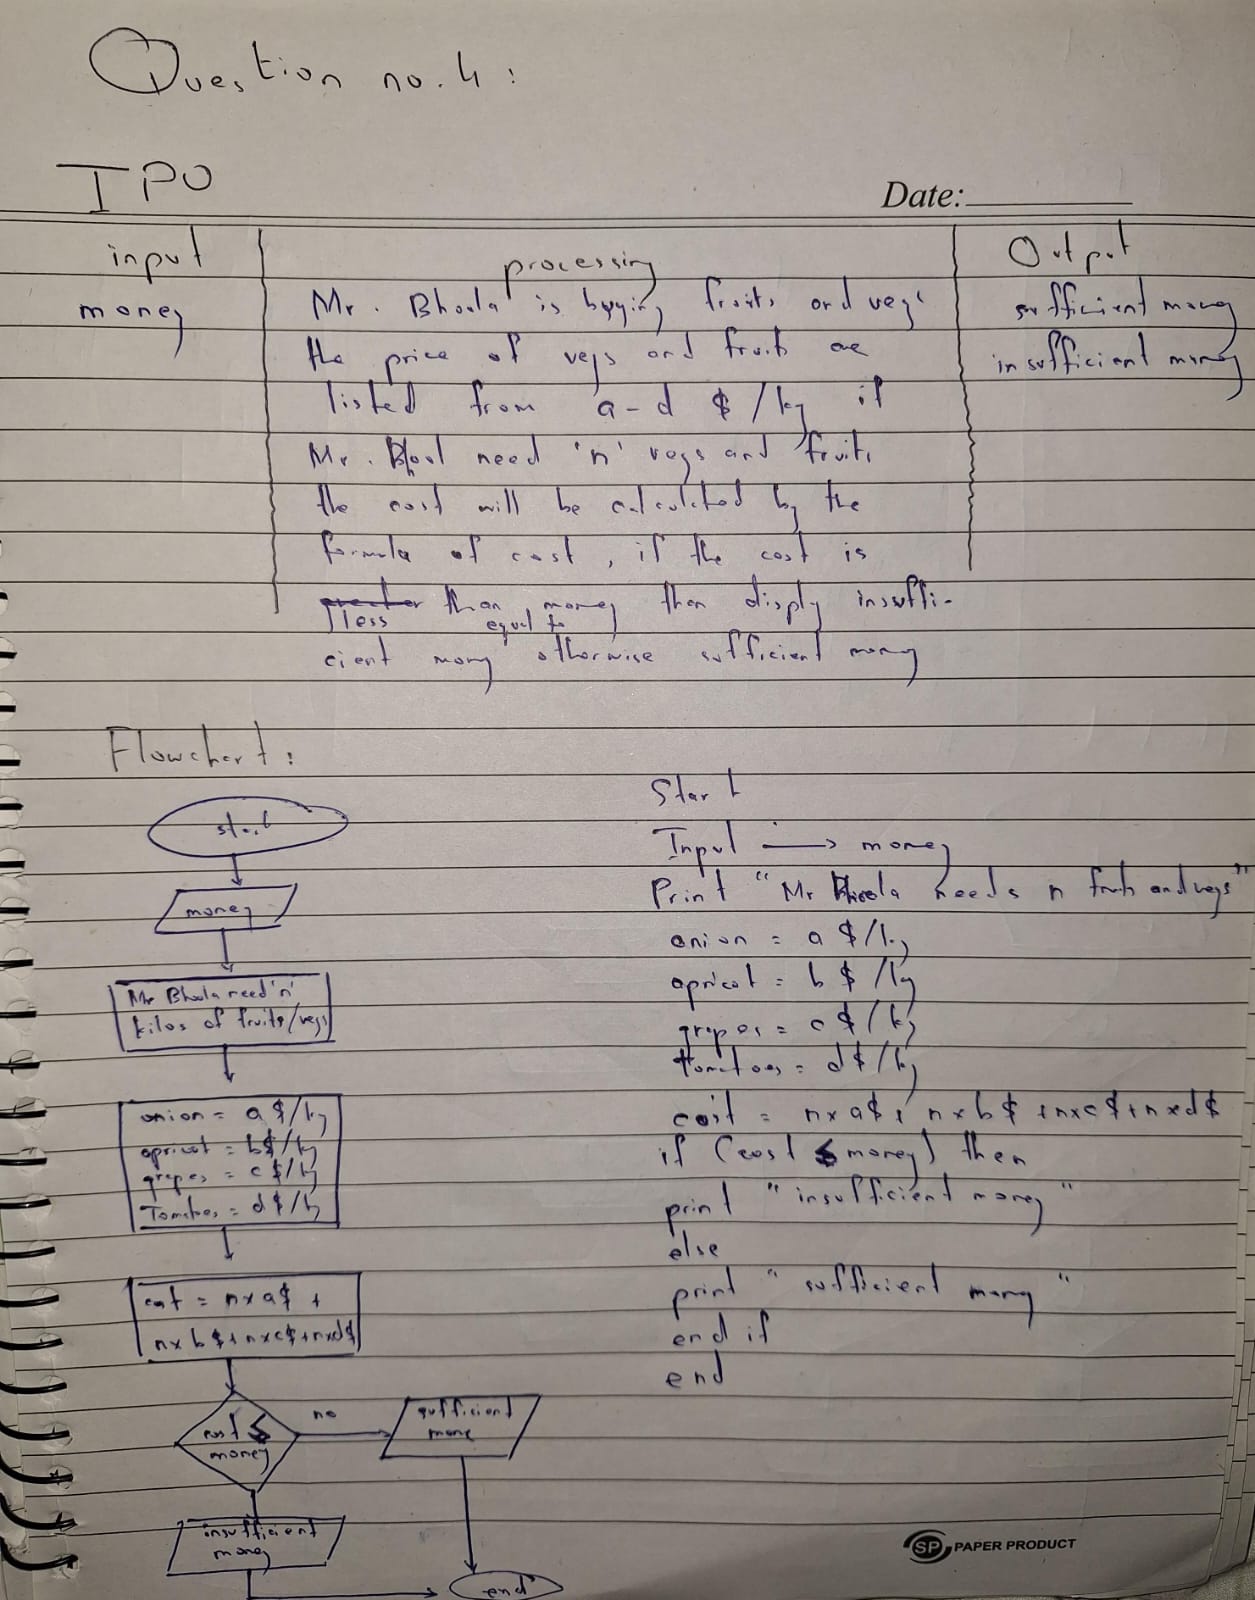 Question no. 4 :
IPO
Date:
input
processing
Output
money
Mr. Bhoola is buying fruits and vegs
the price of vegs and fruits are
listed from a-d $ /kg if
Mr. Bhool need 'n' vegs and fruits
the cost will be calculated by the
formula of cost , if the cost is
less than equal to money then disply insuffi-
cient money otherwise sufficient money
sufficient money
insufficient money
Flowchart :
start
money
Mr Bhoola need 'n'
kilos of fruits/vegs
onion = a $/kg
apricot = b$/kg
grapes = c $/kg
Tomatoes = d $/kg
cost = nxa$ +
nx b $+nxc$+nxd$
cost ≤
money
no
sufficient
mone
insufficient
money
end
Start
Input → money
Print "Mr Bhoola needs n fruits and vegs"
onion = a $/kg
apricot = b $ /kg
grapes = c $ /kg
tomatoes = d $ /kg
cost = nxa$+ nxb$ +nxc$+nxd$
if (cost ≤ money) then
print "insufficient money"
else
print "sufficient money"
end if
end
SP PAPER PRODUCT